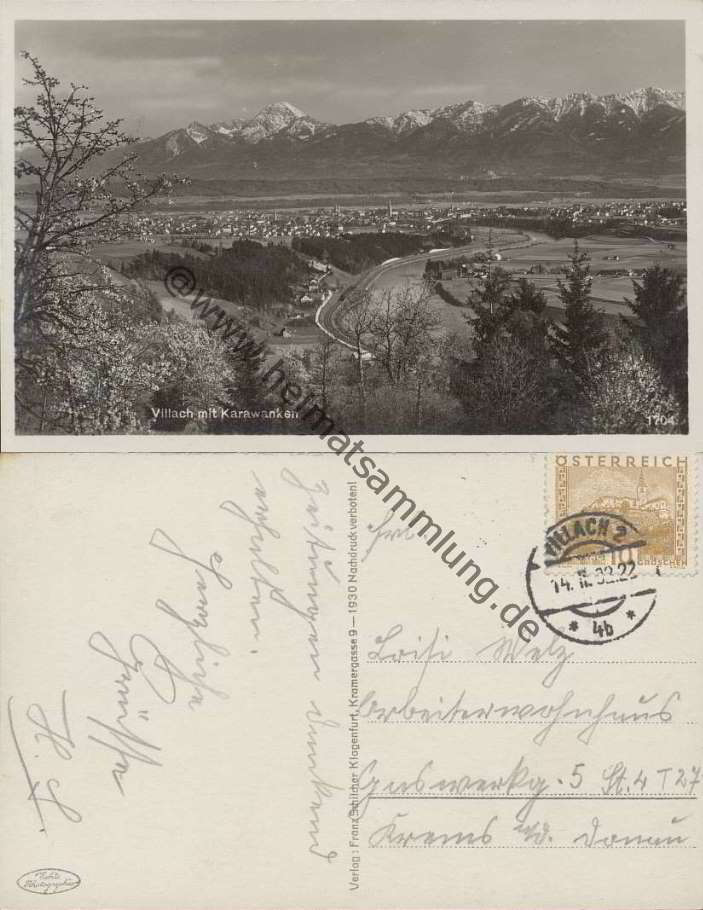 Villach mit Karawanken
1704
© www.heimatsammlung.de
Zeitungen dankend
erhalten.
Herzliche
Grüsse
H. L.
Echte
Photographie
Verlag: Franz Schilcher Klagenfurt, Kramergasse 9 — 1930 Nachdruck verboten!
ÖSTERREICH
10
GROSCHEN
VILLACH 2
14. II. 32. 22
* 4b *
Frl.
Loisi Welz
Arbeiterwohnhaus
Gaswerkg. 5 St. 4 T 27
Krems a/d. Donau